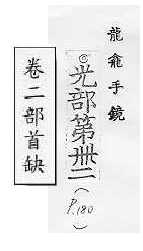 龍龕手鏡
◎光部第卌二(P.180)
卷二部首缺